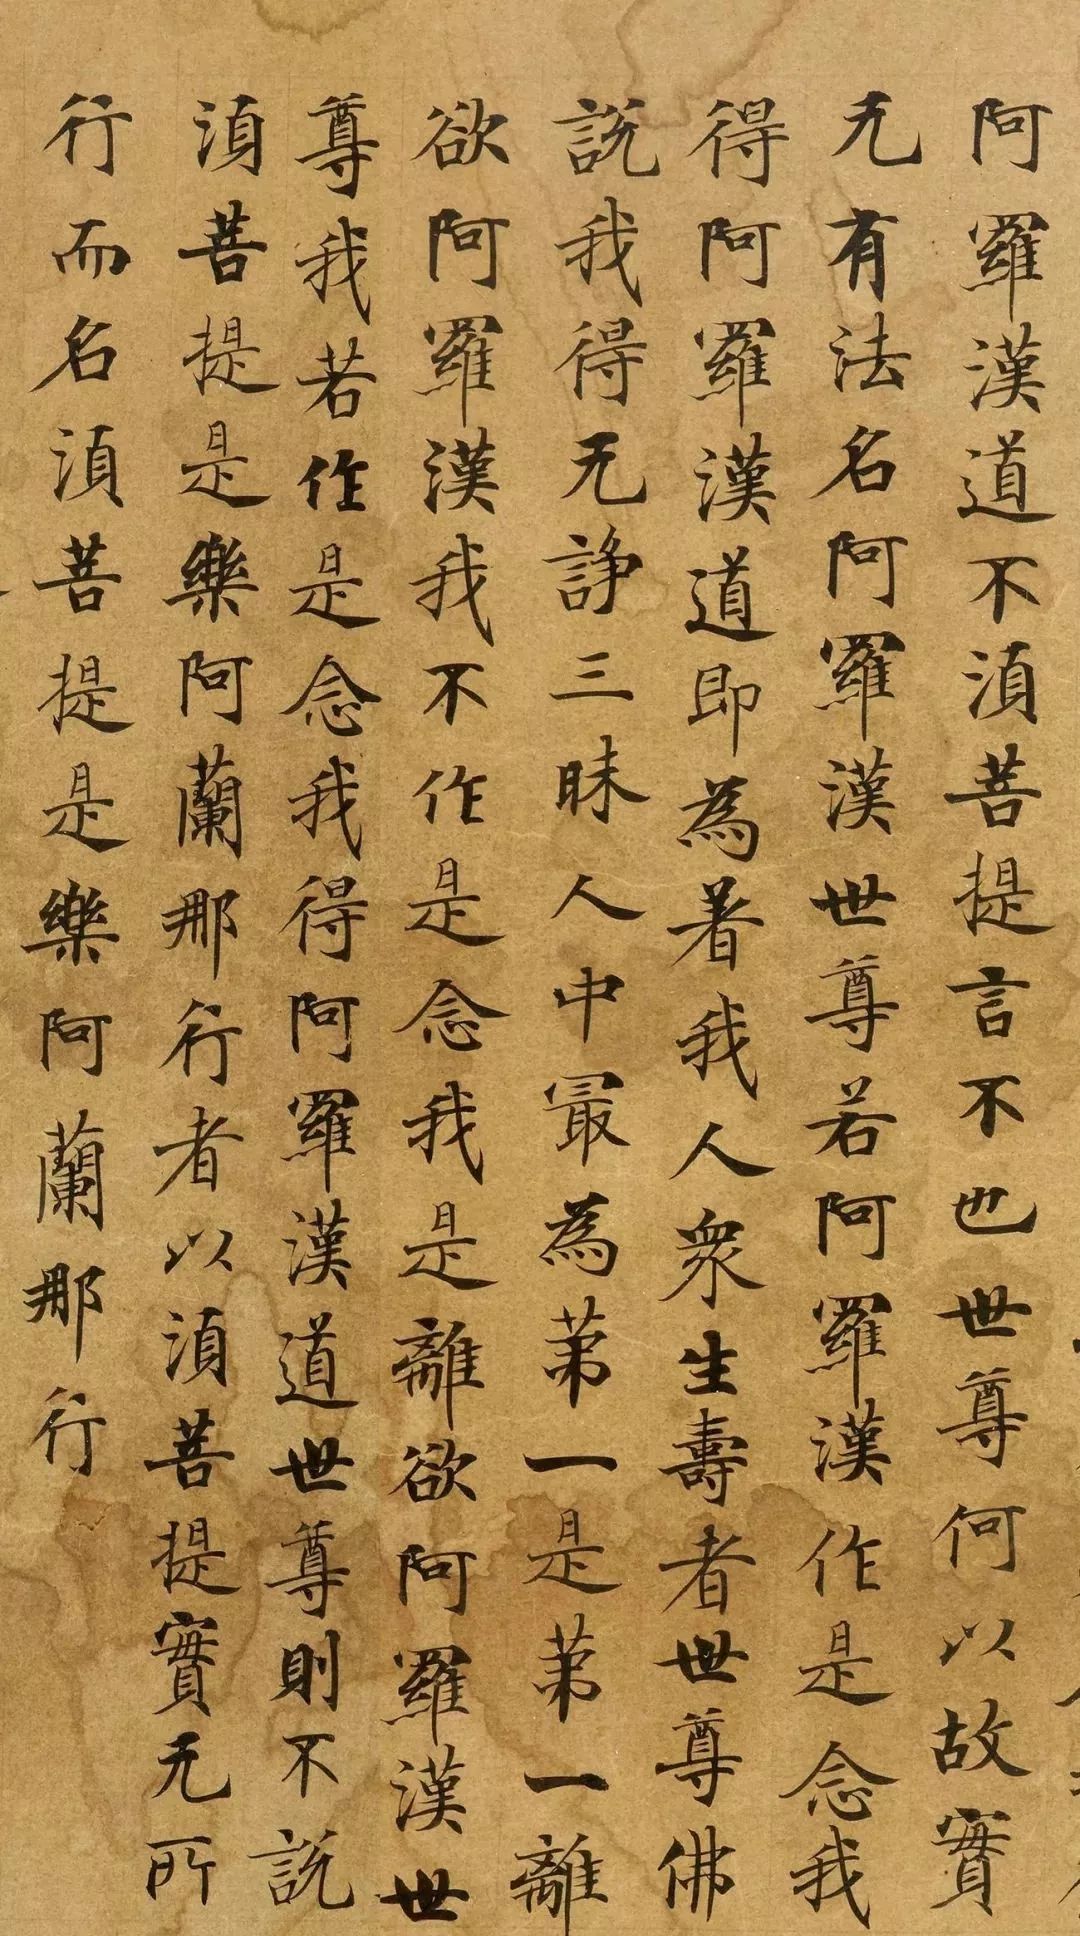 阿羅漢道不須菩提言不也世尊何以故實
无有法名阿羅漢世尊若阿羅漢作是念我
得阿羅漢道即為著我人衆生壽者世尊佛
說我得无諍三昧人中最為第一是第一離
欲阿羅漢我不作是念我是離欲阿羅漢世
尊我若作是念我得阿羅漢道世尊則不說
須菩提是樂阿蘭那行者以須菩提實无所
行而名須菩提是樂阿蘭那行